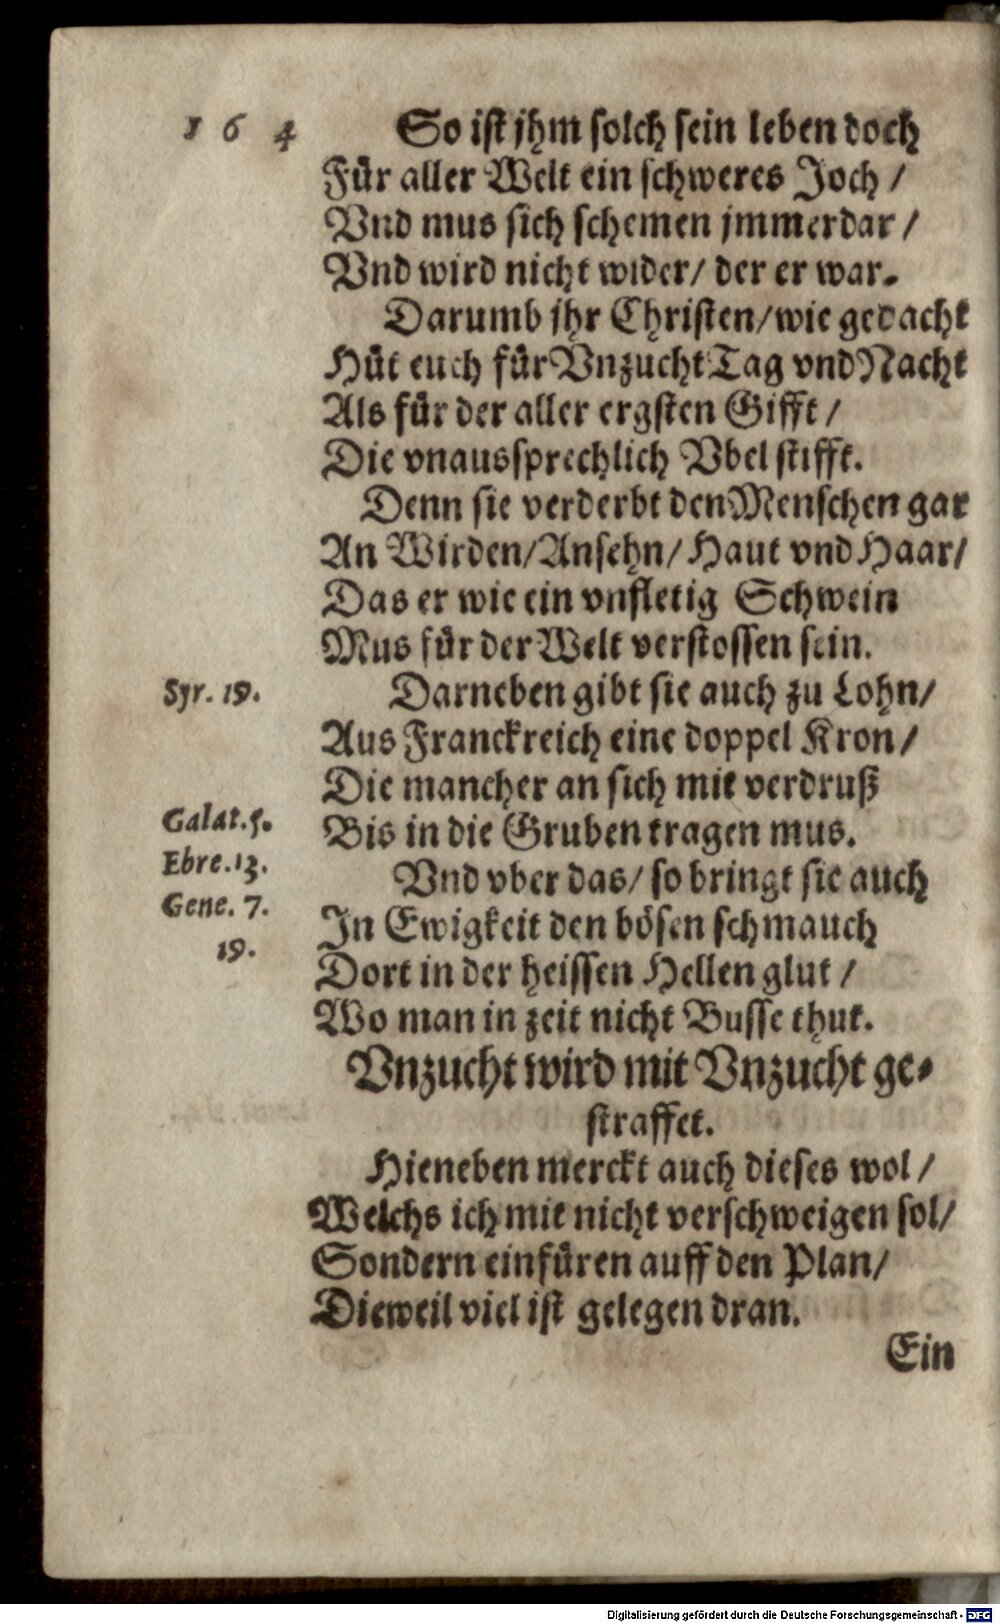 1 6 4
So ist jhm solch sein leben doch
Für aller Welt ein schweres Joch /
Vnd mus sich schemen jmmerdar /
Vnd wird nicht wider / der er war.
Darumb jhr Christen / wie gedacht
Hüt euch für Vnzucht Tag vnd Nacht
Als für der aller ergsten Gifft /
Die vnaussprechlich Vbel stifft.
Denn sie verderbt den Menschen gar
An Wirden / Ansehn / Haut vnd Haar /
Das er wie ein vnfletig Schwein
Mus für der Welt verstossen sein.
Syr. 19.
Darneben gibt sie auch zu Lohn /
Aus Franckreich eine doppel Kron /
Die mancher an sich mit verdruß
Bis in die Gruben tragen mus.
Galat. 5.
Ebre. 13.
Gene. 7.
19.
Vnd vber das / so bringt sie auch
In Ewigkeit den bösen schmauch
Dort in der heissen Hellen glut /
Wo man in zeit nicht Busse thut.
Vnzucht wird mit Vnzucht ge-
straffet.
Hieneben merckt auch dieses wol /
Welchs ich mit nicht verschweigen sol /
Sondern einfüren auff den Plan /
Dieweil viel ist gelegen dran.
Ein
Digitalisierung gefördert durch die Deutsche Forschungsgemeinschaft - DFG